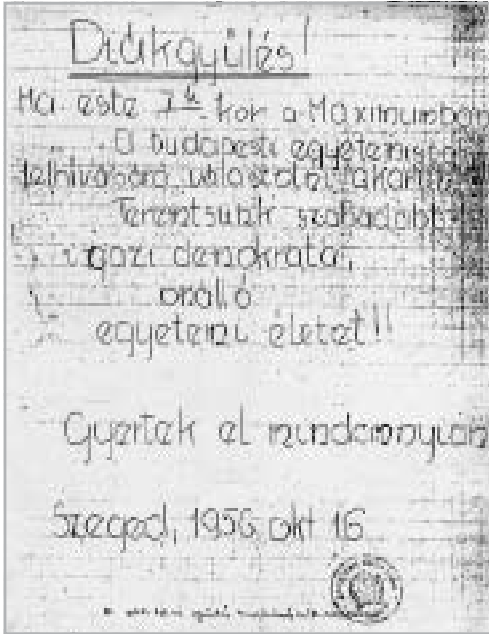 Diákgyűlés!
Ma este 7 h kor a Maximumban
A budapesti
felhívására válaszolni akarunk
Teremtsünk szabadabb
igazi demokrata,
önálló
egyetemi életet!!
Gyertek el mindannyian
Szeged, 1956 okt 16